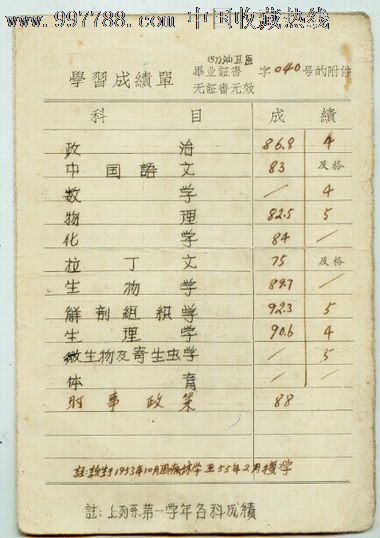 www.997788.com 中国收藏热线
(57)汕卫医
學習成績單 畢业証書 字040号的附件
无証書无效
科 目 成 績
政 治 86.8 4
中国語文 83 及格
数 学 / 4
物 理 82.5 5
化 学 84 /
拉丁文 75 及格
生物学 89.7 /
解剖組織学 92.3 5
生理学 90.6 4
微生物及寄生虫学 / 5
体 育 / /
时事政策 88
註:該生于1953年10月因病休学至55年2月復学
註:上列系第一学年各科成績